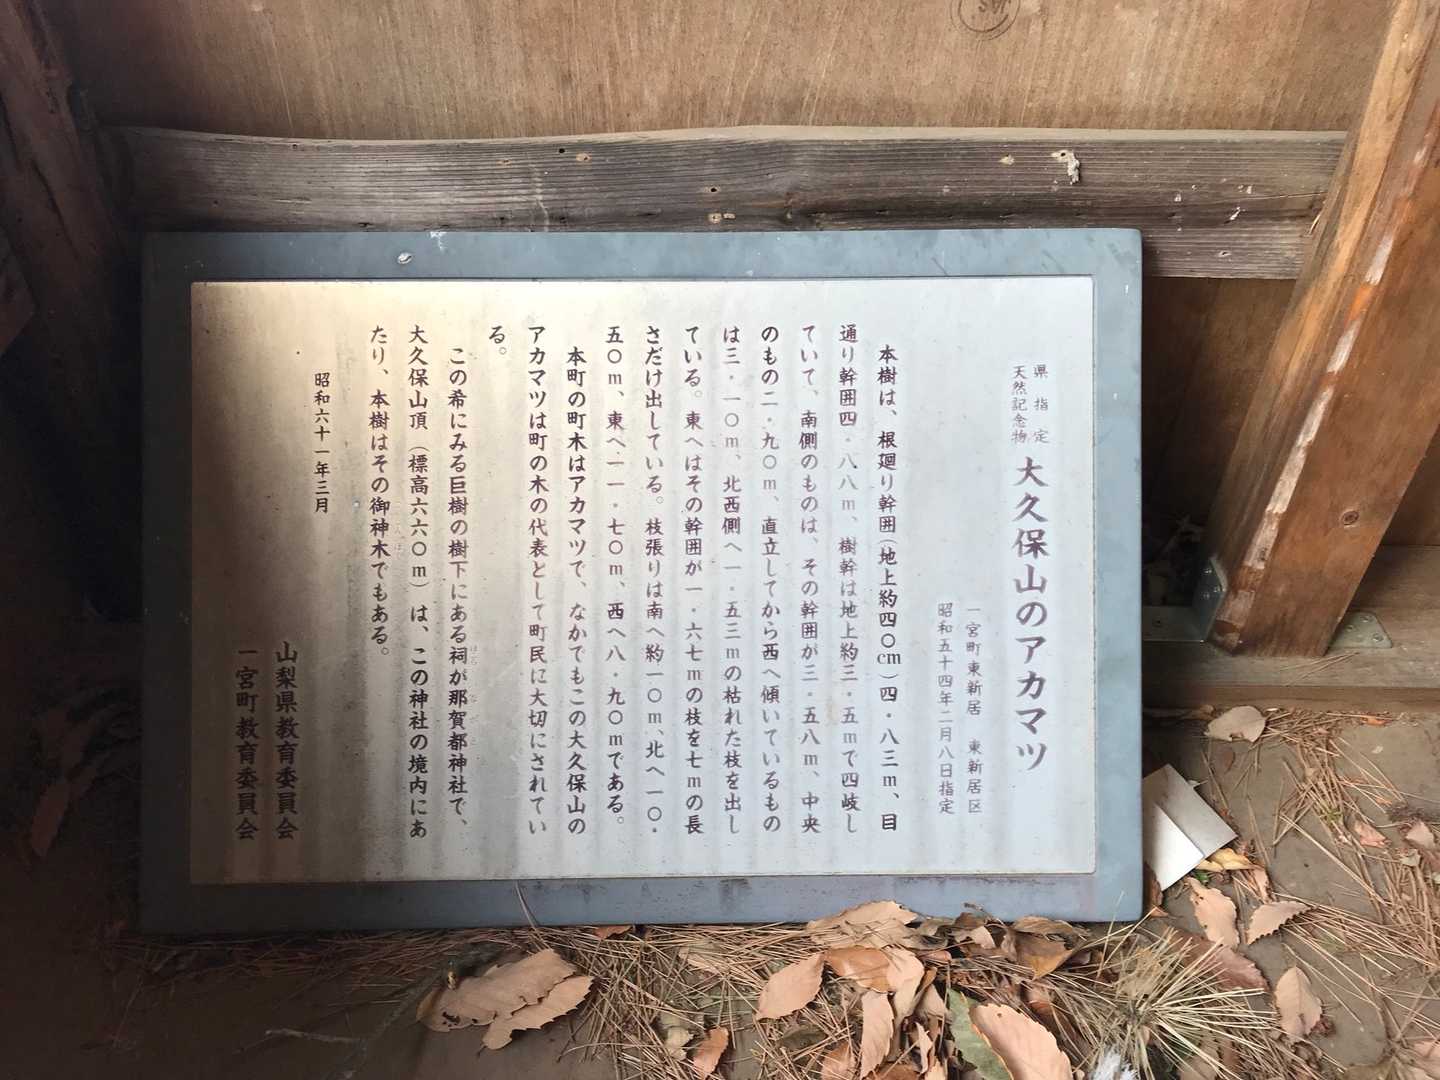 県指定
天然記念物
大久保山のアカマツ
一宮町東新居 東新居区
昭和五十四年二月八日指定
本樹は、根廻り幹囲(地上約四〇cm)四・八三m、目
通り幹囲四・八八m、樹幹は地上約三・五mで四岐し
ていて、南側のものは、その幹囲が三・五八m、中央
のもの二・九〇m、直立してから西へ傾いているもの
は三・一〇m、北西側へ一・五三mの枯れた枝を出し
ている。東へはその幹囲が一・六七mの枝を七mの長
さだけ出している。枝張りは南へ約一〇m、北へ一〇・
五〇m、東へ一一・七〇m、西へ八・九〇mである。
本町の町木はアカマツで、なかでもこの大久保山の
アカマツは町の木の代表として町民に大切にされてい
る。
この希にみる巨樹の樹下にある祠が那賀都神社で、
大久保山頂(標高六六〇m)は、この神社の境内にあ
たり、本樹はその御神木でもある。
昭和六十一年三月
山梨県教育委員会
一宮町教育委員会